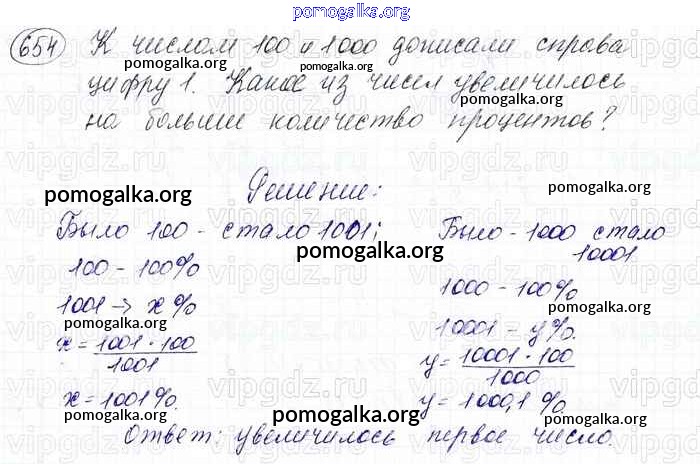 pomogalka.org
654 К числам 100 и 1000 дописали справа
цифру 1. Какое из чисел увеличилось
на большее количество процентов?
pomogalka.org
Решение:
pomogalka.org
pomogalka.org
Было 100 - стало 1001;
Было - 1000 стало
10001
pomogalka.org
100 - 100%
1000 - 100%
pomogalka.org
1001 → x %
10001 - y%.
pomogalka.org
pomogalka.org
x = 1001 · 100
1001
y = 10001 · 100
1000
pomogalka.org
pomogalka.org
x = 1001%.
y = 1000,1 %
pomogalka.org
pomogalka.org
Ответ: увеличилось первое число.
pomogalka.org